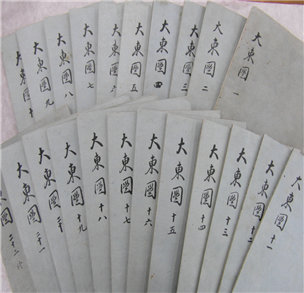 大東圖 一
大東圖 二
大東圖 三
大東圖 四
大東圖 五
大東圖 六
大東圖 七
大東圖 八
大東圖 九
大東圖 十
大東圖 十一
大東圖 十二
大東圖 十三
大東圖 十四
大東圖 十五
大東圖 十六
大東圖 十七
大東圖 十八
大東圖 十九
大東圖 二十
大東圖 二十一
大東圖 二十二